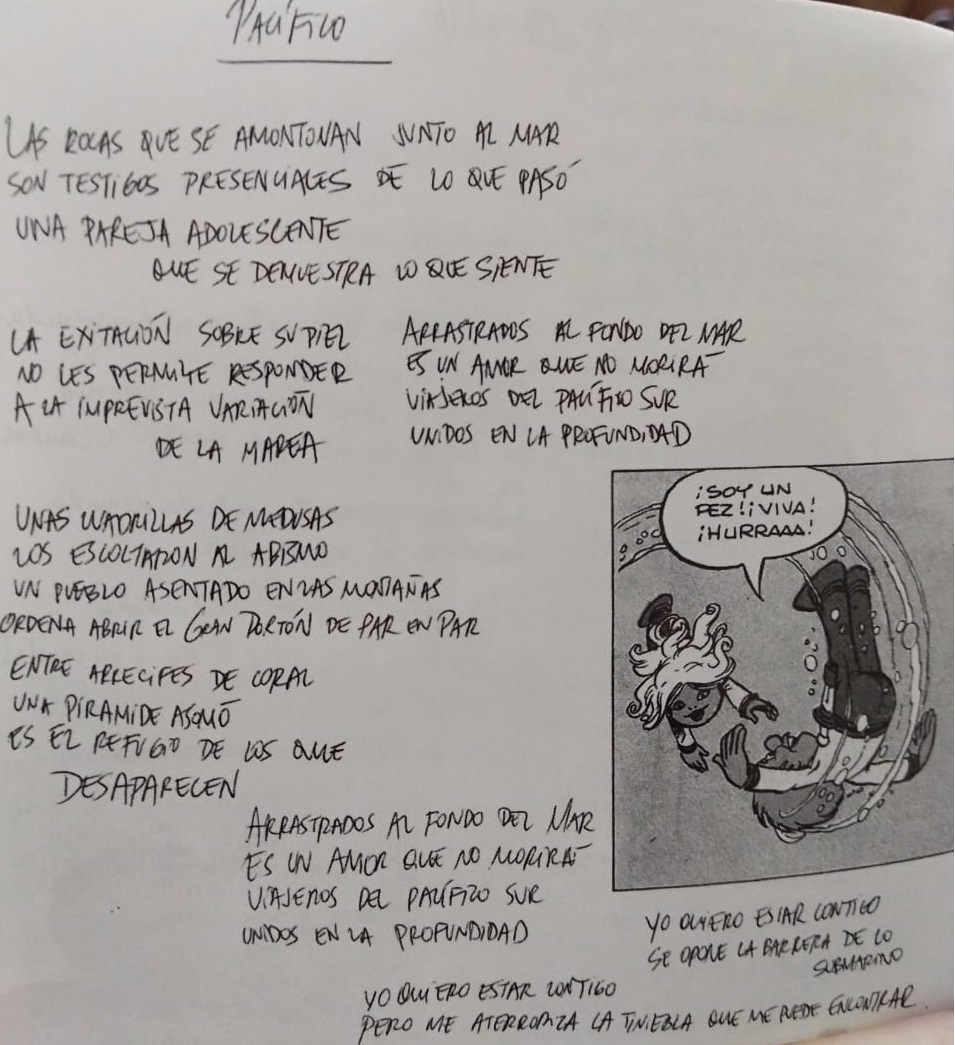 PACÍFICO
LAS ROCAS QUE SE AMONTONAN JUNTO AL MAR
SON TESTIGOS PRESENCIALES DE LO QUE PASÓ
UNA PAREJA ADOLESCENTE
QUE SE DEMUESTRA LO QUE SIENTE
LA EXITACIÓN SOBRE SU PIEL
NO LES PERMITE RESPONDER
A LA IMPREVISTA VARIACIÓN
DE LA MAREA
ARRASTRADOS AL FONDO DEL MAR
ES UN AMOR QUE NO MORIRÁ
VIAJEROS DEL PACÍFICO SUR
UNIDOS EN LA PROFUNDIDAD
UNAS CUADRILLAS DE MEDUSAS
LOS ESCOLTARON AL ABISMO
UN PUEBLO ASENTADO EN LAS MONTAÑAS
ORDENA ABRIR EL GRAN PORTÓN DE PAR EN PAR
ENTRE ARRECIFES DE CORAL
UNA PIRAMIDE ASOMÓ
ES EL REFUGIO DE LOS QUE
DESAPARECEN
ARRASTRADOS AL FONDO DEL MAR
ES UN AMOR QUE NO MORIRÁ
VIAJEROS DEL PACÍFICO SUR
UNIDOS EN LA PROFUNDIDAD
¡SOY UN
PEZ! ¡VIVA!
¡HURRAAA!
YO QUIERO ESTAR CONTIGO
SE OPONE LA BARRERA DE LO
SUBMARINO
YO QUIERO ESTAR CONTIGO
PERO ME ATERRORIZA LA TINIEBLA QUE ME PUEDE ENCONTRAR.